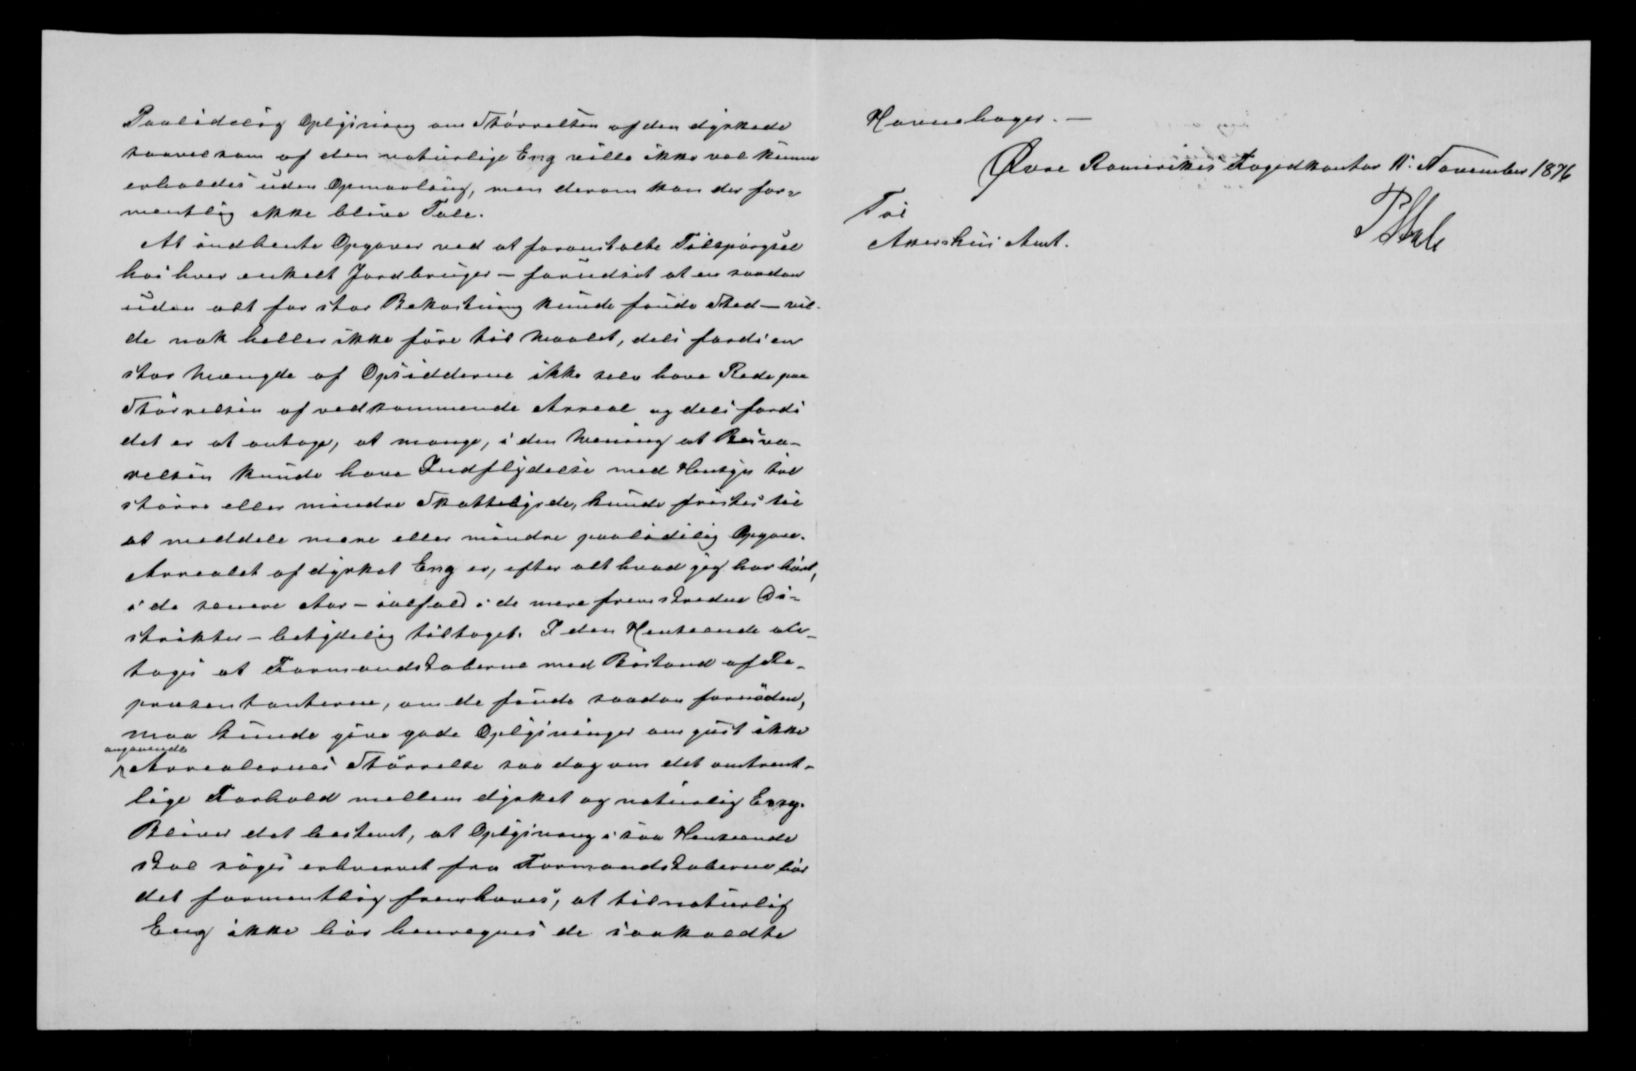 Paalidelig Oplysning om Størrelsen af den dyrkede
saavelsom af den naturlige Eng ville ikke vel kunne
erholdes uden Opmaaling, men derom kan der for-
mentlig ikke blive Tale.
At indhente Opgaver ved at foranstalte Tilspørgsel
hos hver enkelt Jordbruger — forudsat at en saadan
uden alt for stor Bekostning kunde finde Sted — vil-
de nok heller ikke føre til Maalet, dels fordi en
stor Mængde af Opsidderne ikke selv have Rede paa
Størrelsen af vedkommende Arreal og dels fordi
det er at antage, at mange, i den Mening at Besva-
relsen kunde have Indflydelse med Hensyn til
større eller mindre Skattebyrde, kunde fristes til
at meddele mere eller mindre paalidelig Opgave.
Arrealet af dyrket Eng er, efter alt hvad jeg har hørt,
i de senere Aar — ialfald i de mere fremskredne Di-
strikter — betydelig tiltaget. I den Henseende an-
tages at Formandskaberne med Bistand af Re-
præsentanterne, om de finde saadan fornøden,
maa kunde give gode Oplysninger om just ikke
angjældende
Arrealernes Størrelse saa dog om det omtrent-
lige Forhold mellem dyrket og naturlig Eng.
Bliver det bestemt, at Oplysning i saa Henseende
skal søges erhvervet fra Formandskaberne bør
det formentlig fremhæves, at til naturlig
Eng ikke bør henregnes de saakaldte
Havnehager. —
Øvre Romerikes Fogedkontor 11. November 1876
Til
Akershus Amt.